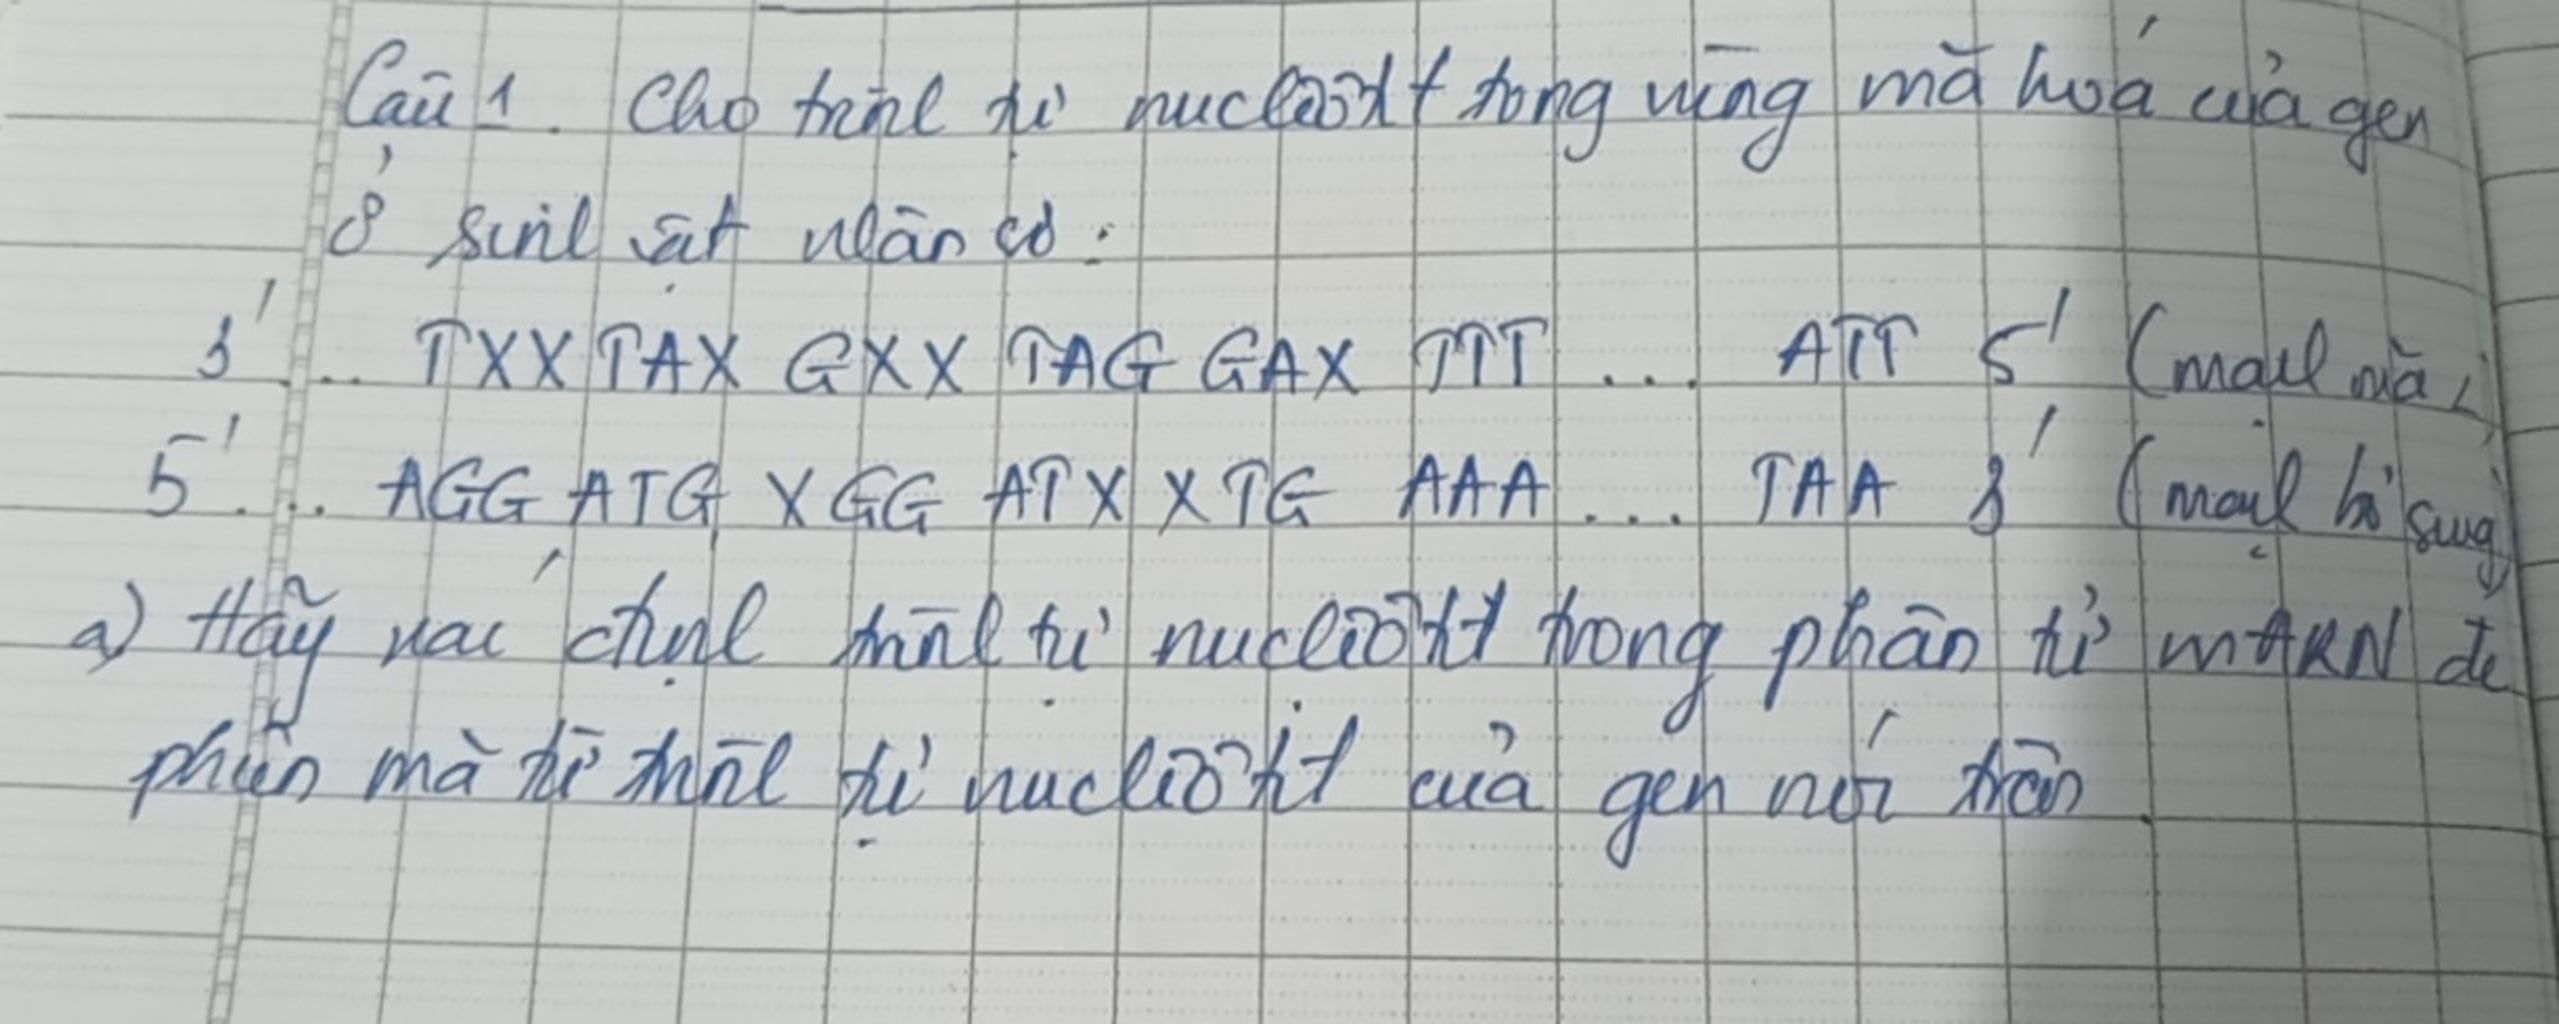 Câu 1. Cho trình tự nuclêôtit trong vùng mã hoá của gen
ở sinh vật nhân sơ:
3'... TXX TAX GXX TAG GAX TTT ... ATT 5' (mạch mã
5'... AGG ATG XGG ATX XTG AAA ... TAA 3' (mạch bổ sung)
a) Hãy xác định trình tự nuclêôtit trong phân tử mARN
phiên mã từ trình tự nuclêôtit của gen nói trên.